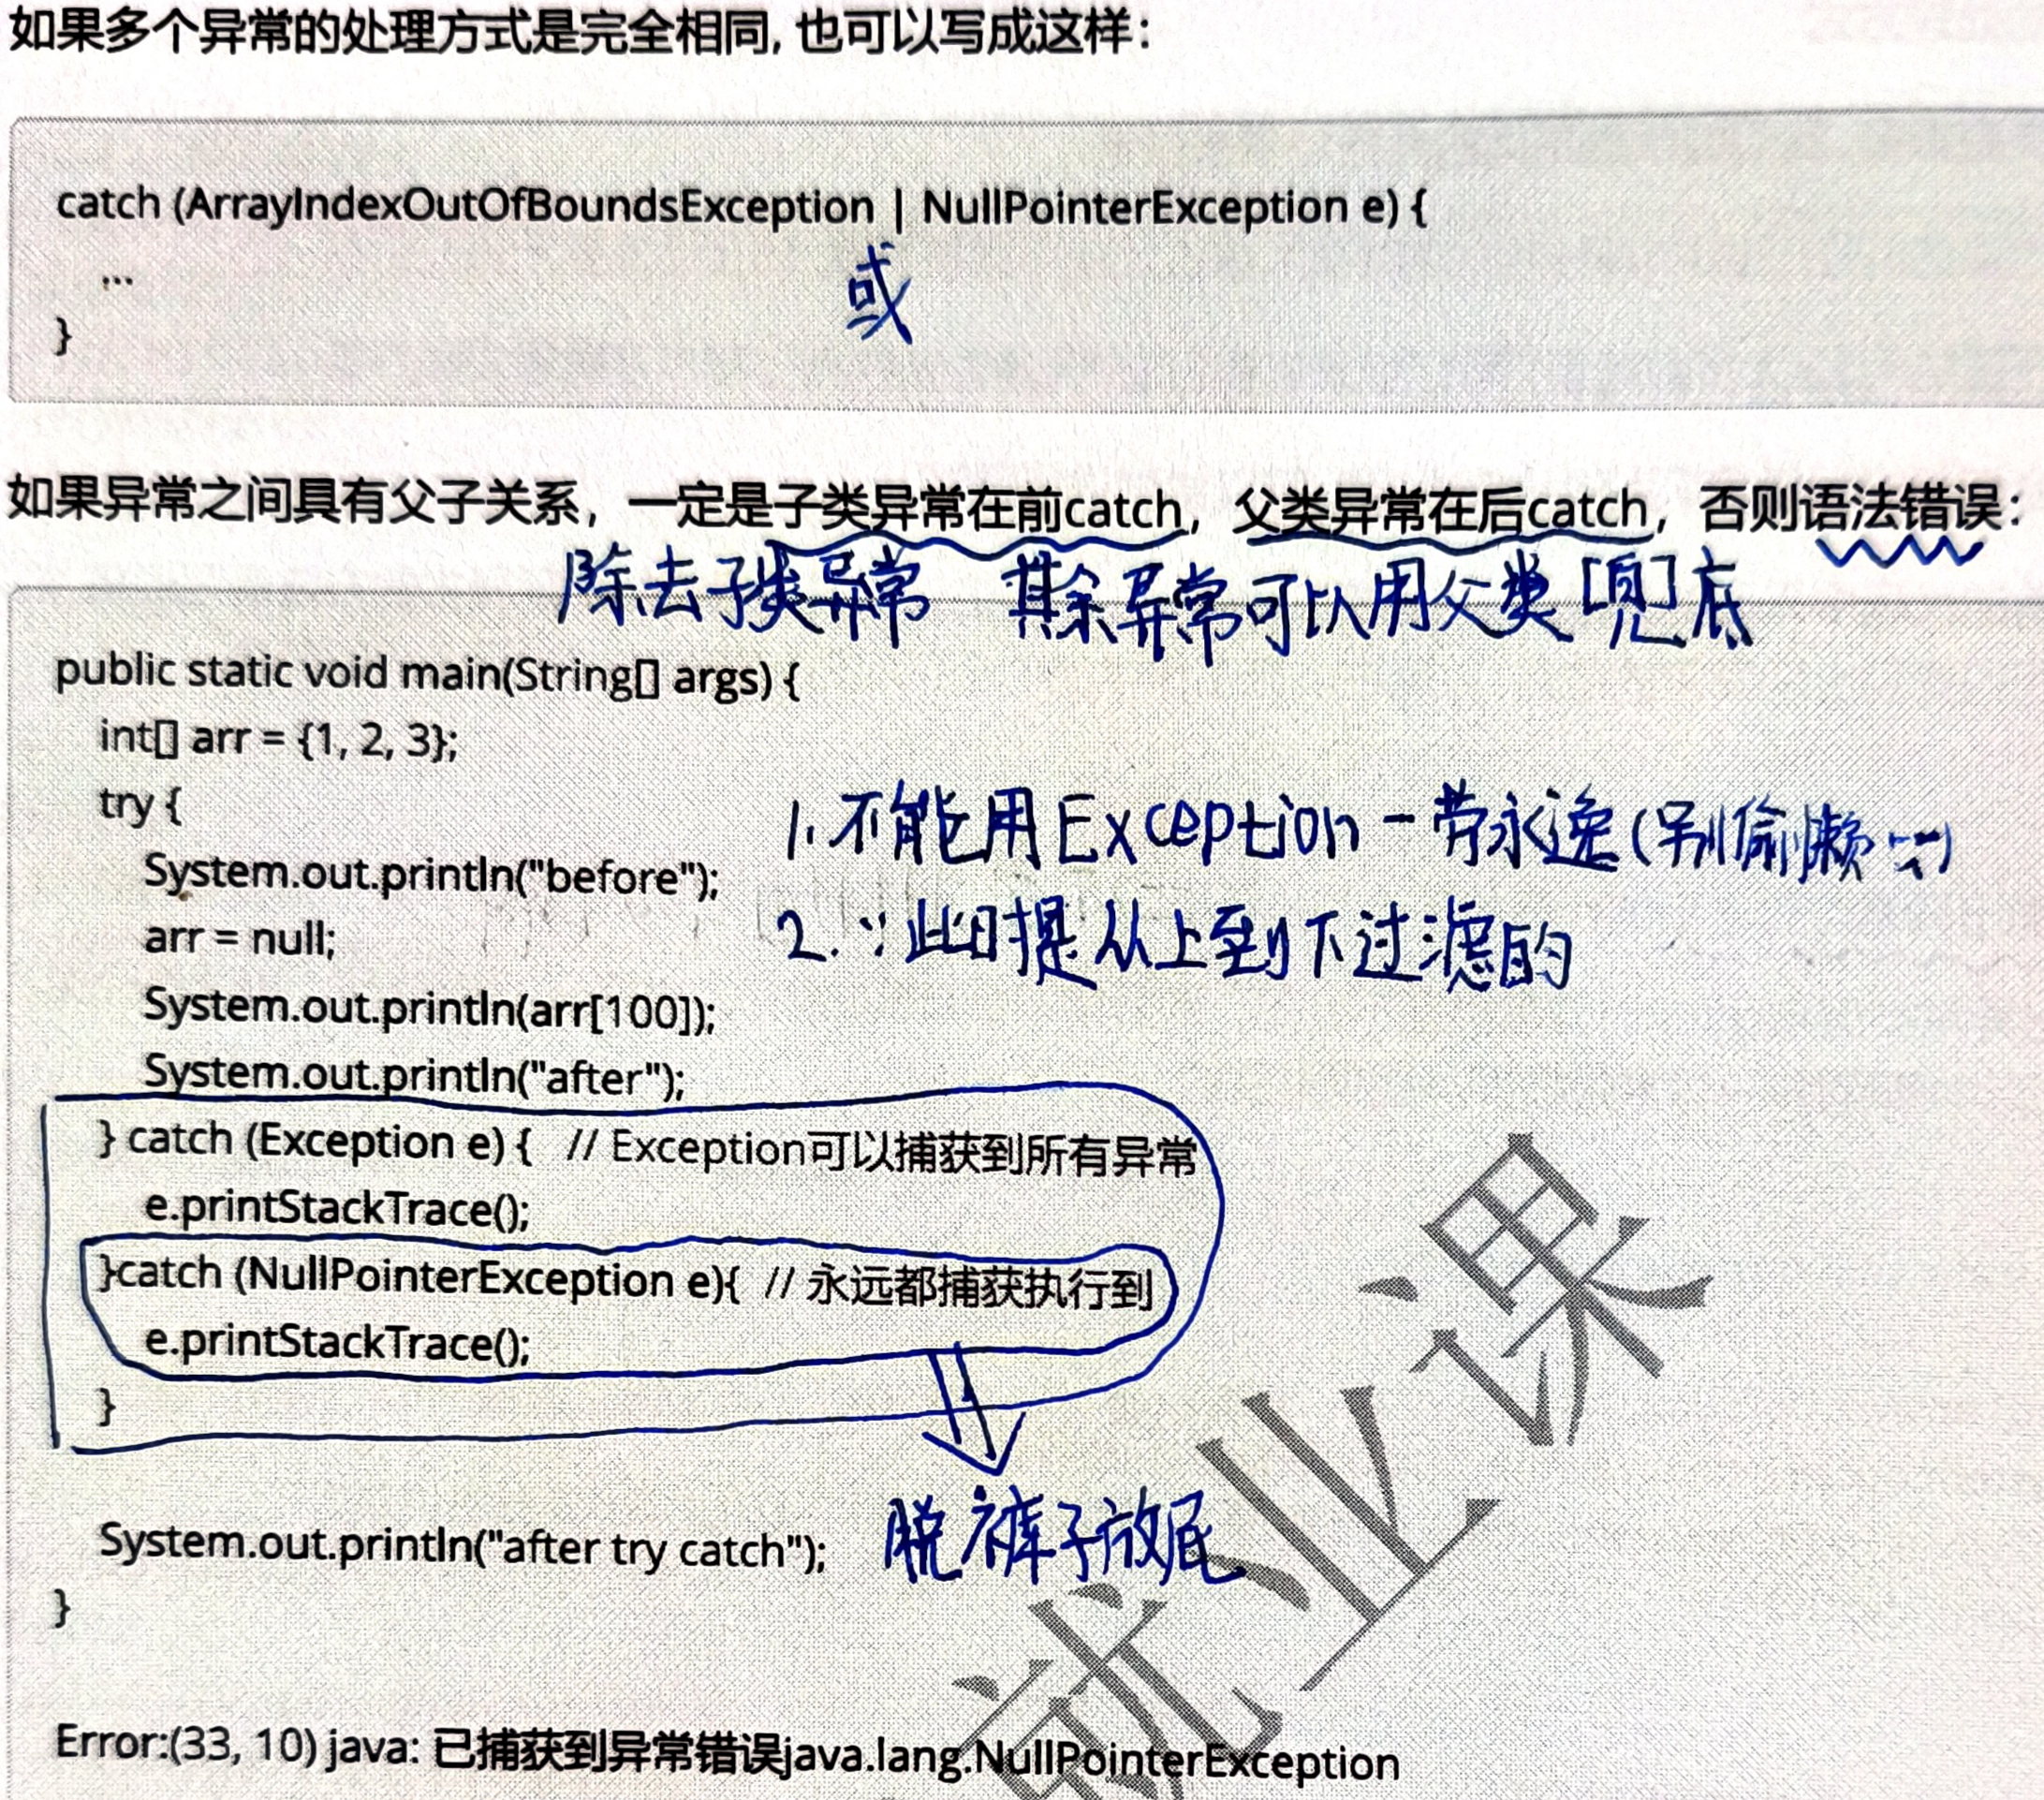 如果多个异常的处理方式是完全相同, 也可以写成这样：
catch (ArrayIndexOutOfBoundsException | NullPointerException e) {
...
或
}
如果异常之间具有父子关系，一定是子类异常在前catch，父类异常在后catch，否则语法错误：
除去子类异常 其余异常可以用父类[兜]底
public static void main(String[] args) {
int[] arr = {1, 2, 3};
try {
1. 不能用Exception一劳永逸(别偷懒…)
System.out.println("before");
2. ∵此时是从上到下过滤的
arr = null;
System.out.println(arr[100]);
System.out.println("after");
} catch (Exception e) { // Exception可以捕获到所有异常
e.printStackTrace();
}catch (NullPointerException e){ // 永远都捕获执行到
e.printStackTrace();
}
脱裤子放屁
System.out.println("after try catch");
}
Error:(33, 10) java: 已捕获到异常错误java.lang.NullPointerException
就业课